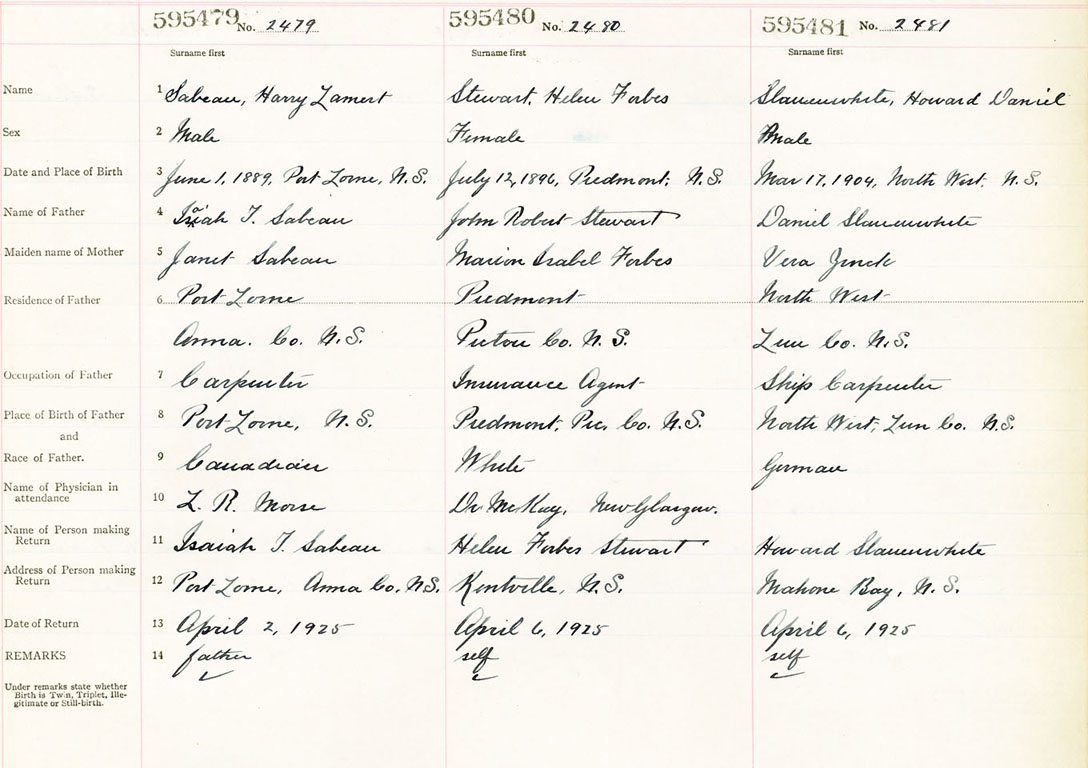 595479 No. 2479 595480 No. 2480 595481 No. 2481
Surname first Surname first Surname first
Name 1 Sabeau, Harry Lamert Stewart, Helen Forbes Slauenwhite, Howard Daniel
Sex 2 Male Female Male
Date and Place of Birth 3 June 1, 1889, Port Lorne, N.S. July 12, 1896, Piedmont, N.S. Mar 17, 1904, North West, N.S.
Name of Father 4 Isaiah T. Sabeau John Robert Stewart Daniel Slauenwhite
Maiden name of Mother 5 Janet Sabeau Marion Isabel Forbes Vera Zinck
Residence of Father 6 Port Lorne Piedmont North West
Anna. Co. N.S. Pictou Co. N.S. Lun Co. N.S.
Occupation of Father 7 Carpenter Insurance Agent Ship Carpenter
Place of Birth of Father 8 Port Lorne, N.S. Piedmont, Pic. Co. N.S. North West, Lun Co. N.S.
and
Race of Father. 9 Canadian White German
Name of Physician in
attendance 10 L. R. Morse Dr McKay, New Glasgow.
Name of Person making
Return 11 Isaiah T. Sabeau Helen Forbes Stewart Howard Slauenwhite
Address of Person making
Return 12 Port Lorne, Anna Co. N.S. Kentville, N.S. Mahone Bay, N.S.
Date of Return 13 April 2, 1925 April 6, 1925 April 6, 1925
REMARKS 14 father self self
Under remarks state whether
Birth is Twin, Triplet, Ille-
gitimate or Still-birth.